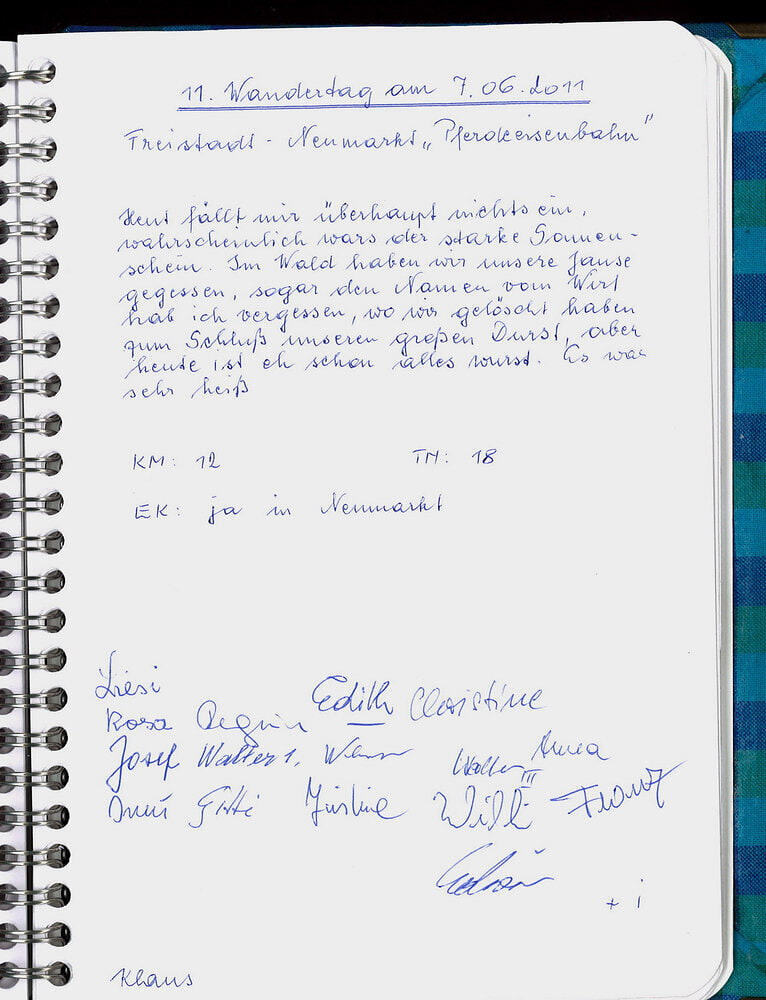 11. Wandertag am 7.06.2011
Freistadt - Neumarkt „Pferdeeisenbahn"
Heut fällt mir überhaupt nichts ein,
wahrscheinlich wars der starke Sonnen-
schein. Im Wald haben wir unsere Jause
gegessen, sogar den Namen vom Wirt
hab ich vergessen, wo wir gelöscht haben
zum Schluß unseren großen Durst, aber
heute ist eh schon alles wurst. Es war
sehr heiß
KM: 12 TN: 18
EK: ja in Neumarkt
Liesi
Edith Christine
Rosa
Josef Walter 1. Anna
Walter III
Gitti Justine Willi Franz
+ i
Klaus